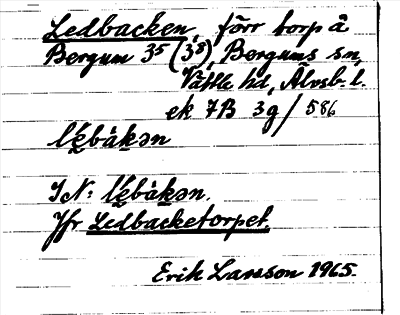 Ledbacken, förr torp å
Bergum 3⁵ (3⁸), Bergums sn,
Vättle hd, Älvsb. l.
ek 7B 3g / 586
lé̱bàkən
SN: lé̱bàkən.
Jfr Ledbacketorpet.
Erik Larsson 1965.